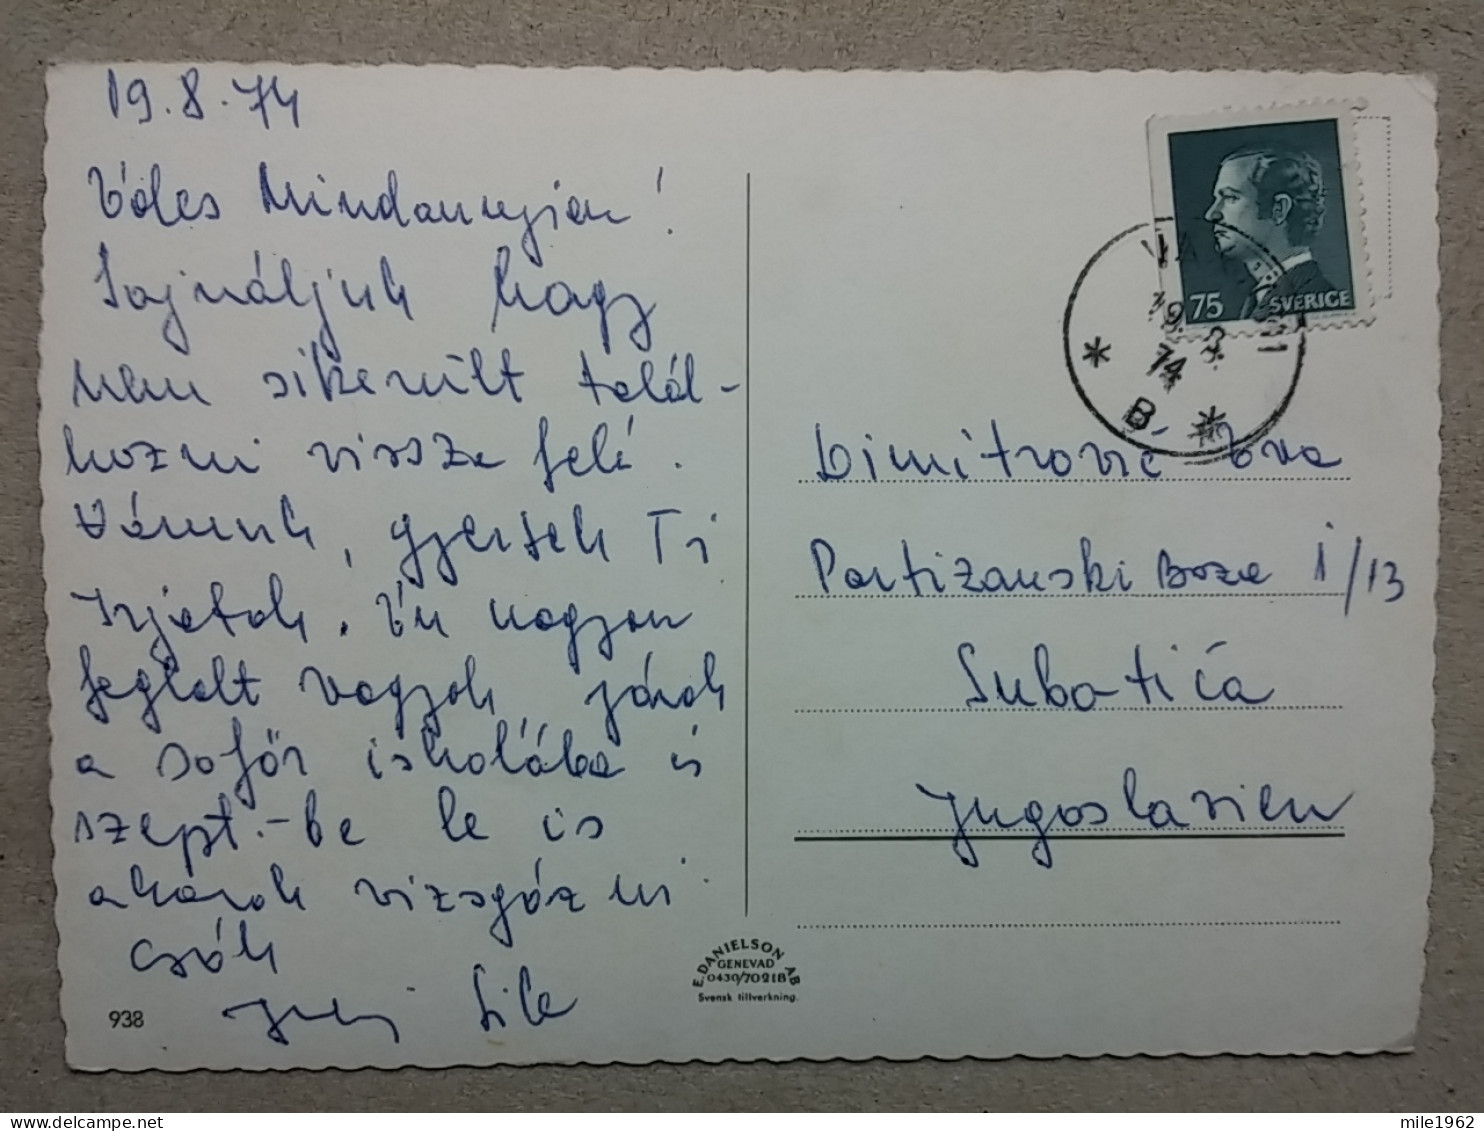 19.8.74
Édes Mindannyian!
Sajnáljuk hogy
nem sikerült talál-
kozni vissza felé.
Várunk, gyertek Ti
Írjatok. Én nagyon
foglalt vagyok járok
a sofőr iskolába és
szept.-be le is
akarok vizsgázni
csók
938
75
SVERIGE
19. 8.
74
B
Dimitrović Eva
Partizanski Baza I/13
Subatića
Jugoslavien
E. DANIELSON AB
GENEVAD
0430/70218
Svensk tillverkning.
mile1962